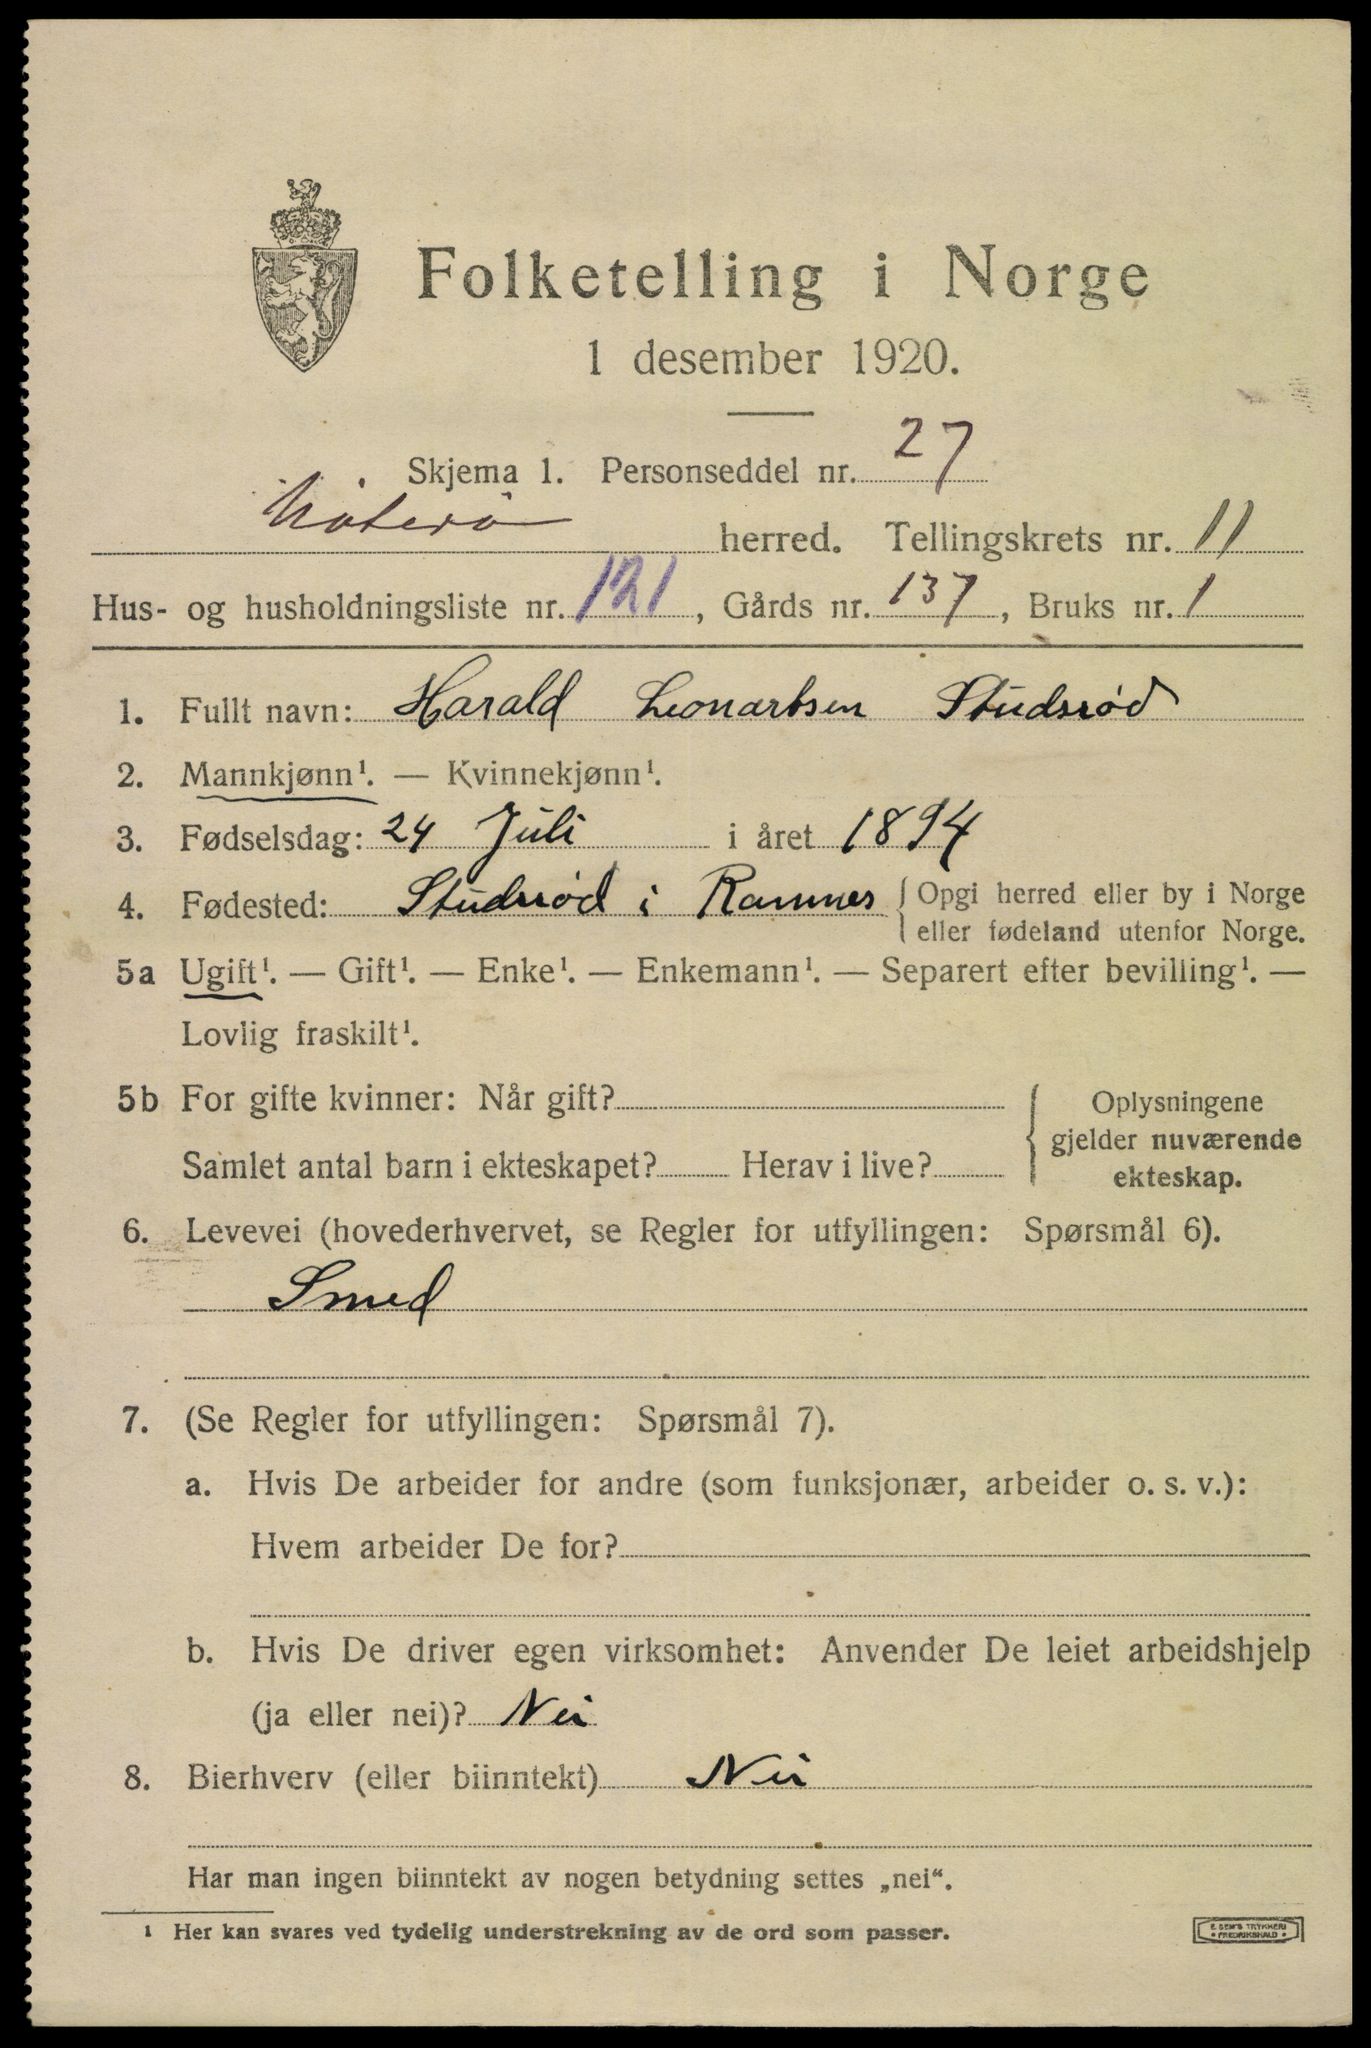 Folketelling i Norge
1 desember 1920.
Skjema 1. Personseddel nr. 27
Nøterø herred. Tellingskrets nr. 11
Hus- og husholdningsliste nr. 121, Gårds nr. 137, Bruks nr. 1
1. Fullt navn: Harald Leonartsen Studsrød
2. Mannkjønn¹. — Kvinnekjønn¹.
3. Fødselsdag: 24 Juli i året 1894
4. Fødested: Studsrød i Ramnes { Opgi herred eller by i Norge
eller fødeland utenfor Norge.
5a Ugift¹. — Gift¹. — Enke¹. — Enkemann¹. — Separert efter bevilling¹. —
Lovlig fraskilt¹.
5b For gifte kvinner: Når gift?
Samlet antal barn i ekteskapet? Herav i live?
Oplysningene
gjelder nuværende
ekteskap.
6. Levevei (hovederhvervet, se Regler for utfyllingen: Spørsmål 6).
Smed
7. (Se Regler for utfyllingen: Spørsmål 7).
a. Hvis De arbeider for andre (som funksjonær, arbeider o. s. v.):
Hvem arbeider De for?
b. Hvis De driver egen virksomhet: Anvender De leiet arbeidshjelp
(ja eller nei)? Nei
8. Bierhverv (eller biinntekt) Nei
Har man ingen biinntekt av nogen betydning settes „nei“.
¹ Her kan svares ved tydelig understrekning av de ord som passer.
E. SEM'S TRYKKERI
• FREDRIKSHALD •